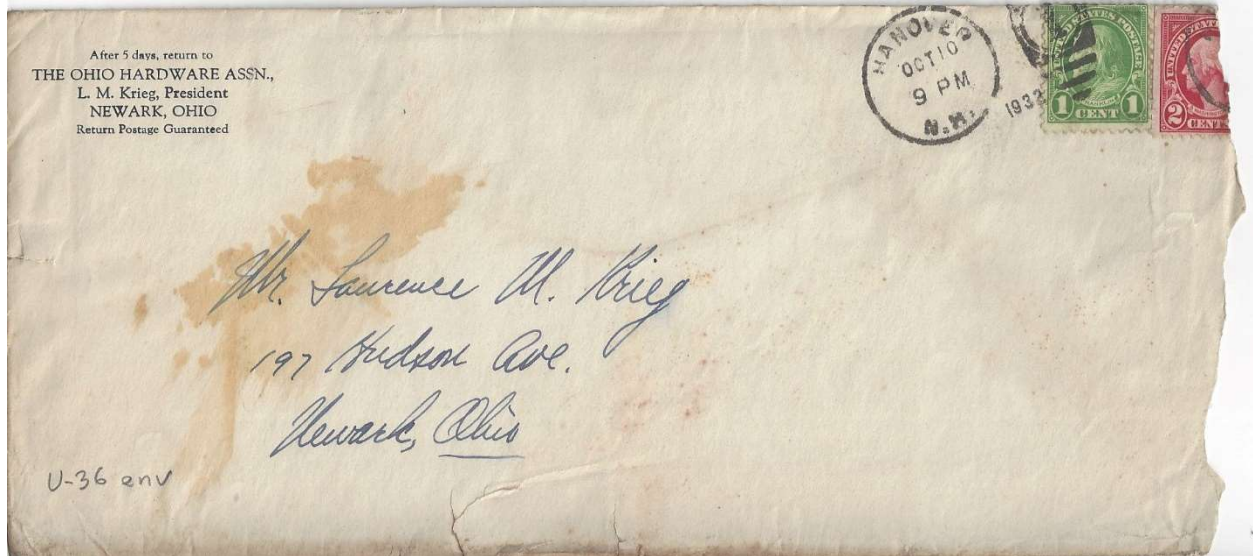 After 5 days, return to
THE OHIO HARDWARE ASSN.,
L. M. Krieg, President
NEWARK, OHIO
Return Postage Guaranteed
HANOVER
OCT 10
9 PM
1932
N.H.
UNITED STATES POSTAGE
1 CENT 1
UNITED STATES
2 CENTS
Mr. Laurence M. Krieg
197 Hudson Ave.
Newark, Ohio
U-36 env